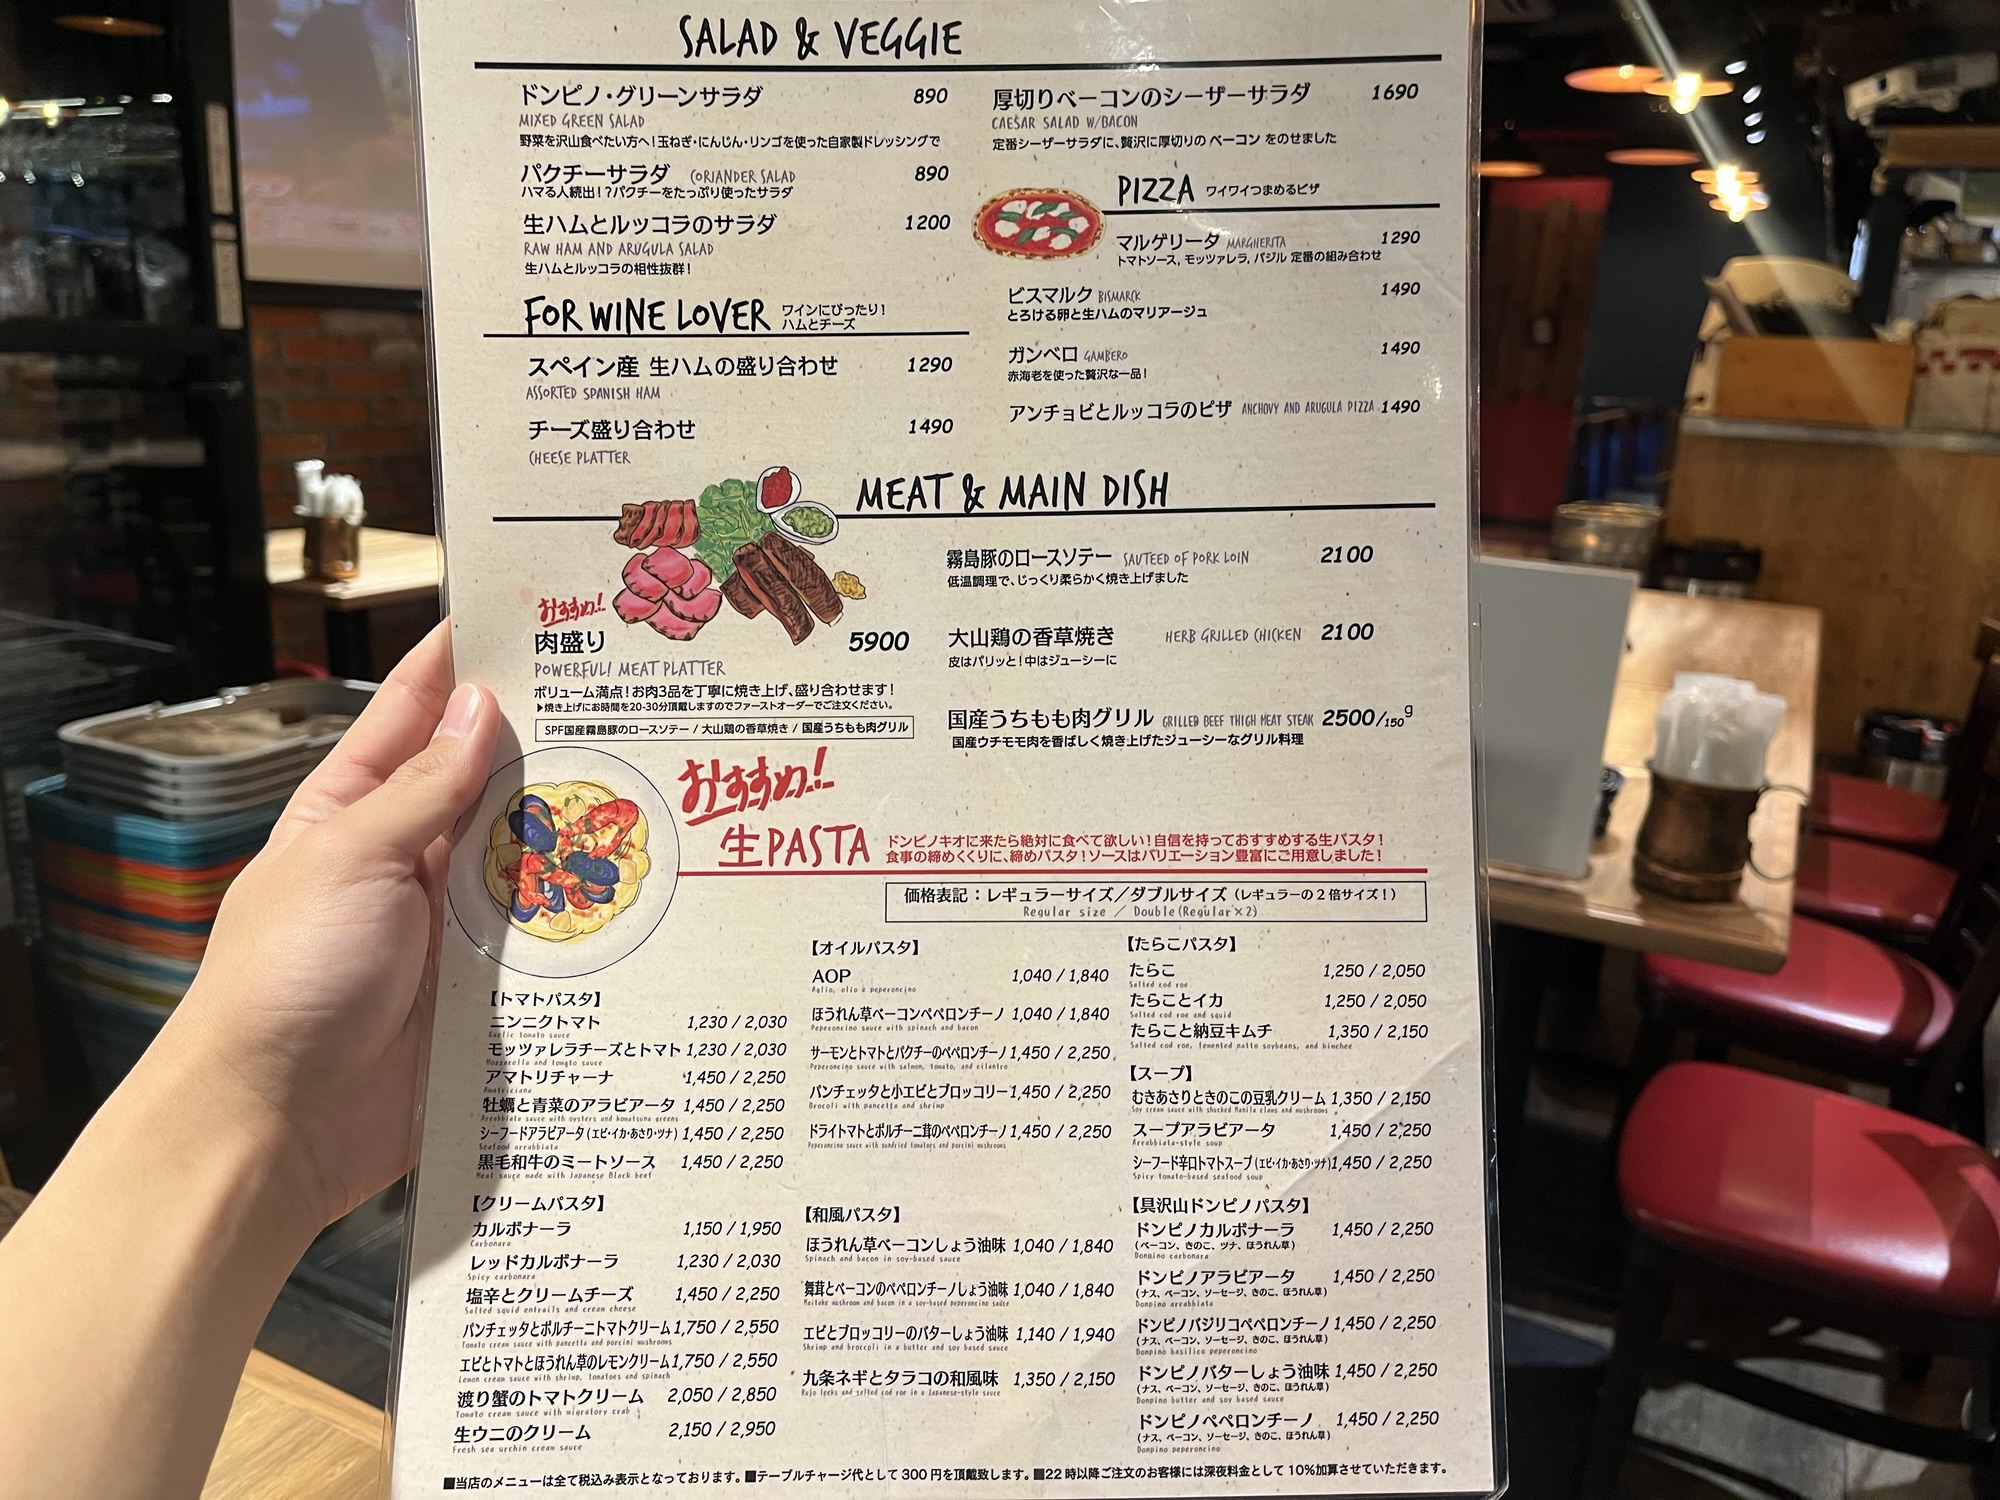 SALAD & VEGGIE
ドンピノ・グリーンサラダ 890
MIXED GREEN SALAD
野菜を沢山食べたい方へ!玉ねぎ・にんじん・リンゴを使った自家製ドレッシングで
パクチーサラダ CORIANDER SALAD 890
ハマる人続出!?パクチーをたっぷり使ったサラダ
生ハムとルッコラのサラダ 1200
RAW HAM AND ARUGULA SALAD
生ハムとルッコラの相性抜群!
厚切りベーコンのシーザーサラダ 1690
CAESAR SALAD W/BACON
定番シーザーサラダに、贅沢に厚切りの ベーコン をのせました
PIZZA ワイワイつまめるピザ
マルゲリータ MARGHERITA 1290
トマトソース, モッツァレラ, バジル 定番の組み合わせ
ビスマルク BISMARCK 1490
とろける卵と生ハムのマリアージュ
ガンベロ GAMBERO 1490
赤海老を使った贅沢な一品!
アンチョビとルッコラのピザ ANCHOVY AND ARUGULA PIZZA 1490
FOR WINE LOVER ワインにぴったり!
ハムとチーズ
スペイン産 生ハムの盛り合わせ 1290
ASSORTED SPANISH HAM
チーズ盛り合わせ 1490
CHEESE PLATTER
MEAT & MAIN DISH
おすすめ!
肉盛り 5900
POWERFUL! MEAT PLATTER
ボリューム満点!お肉3品を丁寧に焼き上げ、盛り合わせます!
▶焼き上げにお時間を20-30分頂戴しますのでファーストオーダーでご注文ください。
SPF国産霧島豚のロースソテー / 大山鶏の香草焼き / 国産うちもも肉グリル
霧島豚のロースソテー SAUTEED OF PORK LOIN 2100
低温調理で、じっくり柔らかく焼き上げました
大山鶏の香草焼き HERB GRILLED CHICKEN 2100
皮はパリッと!中はジューシーに
国産うちもも肉グリル GRILLED BEEF THIGH MEAT STEAK 2500/150g
国産ウチモモ肉を香ばしく焼き上げたジューシーなグリル料理
おすすめ!
生PASTA ドンピノキオに来たら絶対に食べて欲しい!自信を持っておすすめする生パスタ!
食事の締めくくりに、締めパスタ!ソースはバリエーション豊富にご用意しました!
価格表記:レギュラーサイズ/ダブルサイズ(レギュラーの2倍サイズ!)
Regular size / Double(Regular×2)
【トマトパスタ】
ニンニクトマト 1,230 / 2,030
Garlic tomato sauce
モッツァレラチーズとトマト 1,230 / 2,030
Mozzarella and tomato sauce
アマトリチャーナ 1,450 / 2,250
Amatriciana
牡蠣と青菜のアラビアータ 1,450 / 2,250
Arrabbiata sauce with oysters and komatsuna greens
シーフードアラビアータ(エビ・イカ・あさり・ツナ) 1,450 / 2,250
Seafood arrabbiata
黒毛和牛のミートソース 1,450 / 2,250
Meat sauce made with Japanese Black beef
【クリームパスタ】
カルボナーラ 1,150 / 1,950
Carbonara
レッドカルボナーラ 1,230 / 2,030
Spicy carbonara
塩辛とクリームチーズ 1,450 / 2,250
Salted squid entrails and cream cheese
パンチェッタとポルチーニトマトクリーム 1,750 / 2,550
Tomato cream sauce with pancetta and porcini mushrooms
エビとトマトとほうれん草のレモンクリーム 1,750 / 2,550
Lemon cream sauce with shrimp, tomatoes and spinach
渡り蟹のトマトクリーム 2,050 / 2,850
Tomato cream sauce with migratory crab
生ウニのクリーム 2,150 / 2,950
Fresh sea urchin cream sauce
【オイルパスタ】
AOP 1,040 / 1,840
Aglio, olio e peperoncino
ほうれん草ベーコンペペロンチーノ 1,040 / 1,840
Peperoncino sauce with spinach and bacon
サーモンとトマトとパクチーのペペロンチーノ 1,450 / 2,250
Peperoncino sauce with salmon, tomato, and cilantro
パンチェッタと小エビとブロッコリー 1,450 / 2,250
Brocoli with pancetta and shrimp
ドライトマトとポルチーニ茸のペペロンチーノ 1,450 / 2,250
Peperoncino sauce with sundried tomatoes and porcini mushrooms
【和風パスタ】
ほうれん草ベーコンしょう油味 1,040 / 1,840
Spinach and bacon in soy-based sauce
舞茸とベーコンのペペロンチーノしょう油味 1,040 / 1,840
Maitake mushroom and bacon in a soy-based peperoncino sauce
エビとブロッコリーのバターしょう油味 1,140 / 1,940
Shrimp and broccoli in a butter and soy based sauce
九条ネギとタラコの和風味 1,350 / 2,150
Kujo leeks and salted cod roe in a Japanese-style sauce
【たらこパスタ】
たらこ 1,250 / 2,050
Salted cod roe
たらことイカ 1,250 / 2,050
Salted cod roe and squid
たらこと納豆キムチ 1,350 / 2,150
Salted cod roe, femented natto soybeans, and kimchee
【スープ】
むきあさりときのこの豆乳クリーム 1,350 / 2,150
Soy cream sauce with shucked Manila clams and mushrooms
スープアラビアータ 1,450 / 2,250
Arrabbiata-style soup
シーフード辛口トマトスープ(エビ・イカ・あさり・ツナ) 1,450 / 2,250
Spicy tomato-based seafood soup
【具沢山ドンピノパスタ】
ドンピノカルボナーラ 1,450 / 2,250
(ベーコン、きのこ、ツナ、ほうれん草)
Donpino carbonara
ドンピノアラビアータ 1,450 / 2,250
(ナス、ベーコン、ソーセージ、きのこ、ほうれん草)
Donpino arrabbiata
ドンピノバジリコペペロンチーノ 1,450 / 2,250
(ナス、ベーコン、ソーセージ、きのこ、ほうれん草)
Donpino basilico peperoncino
ドンピノバターしょう油味 1,450 / 2,250
(ナス、ベーコン、ソーセージ、きのこ、ほうれん草)
Donpino butter and soy based sauce
ドンピノペペロンチーノ 1,450 / 2,250
(ナス、ベーコン、ソーセージ、きのこ、ほうれん草)
Donpino peperoncino
■当店のメニューは全て税込み表示となっております。■テーブルチャージ代として300円を頂戴致します。■22時以降ご注文のお客様には深夜料金として10%加算させていただきます。